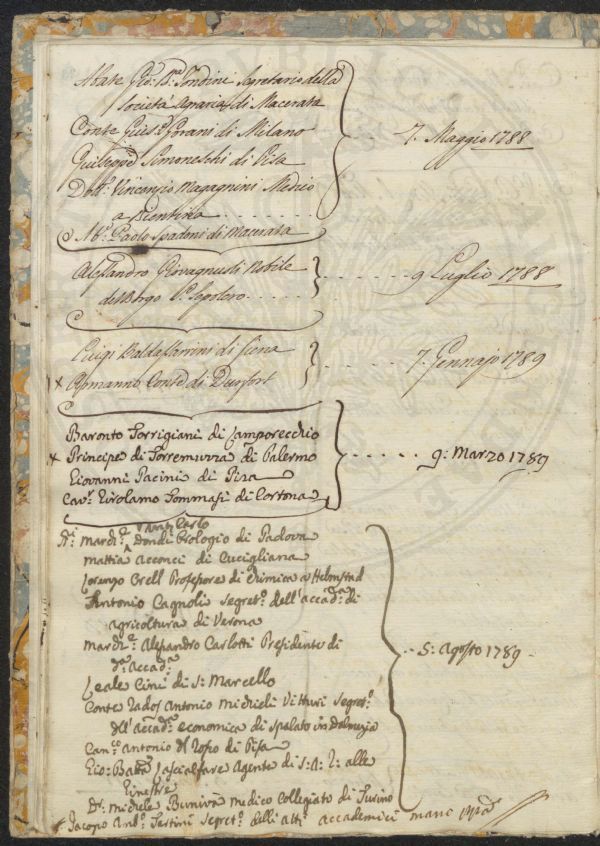 Abate Gio: Bta Tondini Segretario della
Società Agraria di Macerata
Conte Giuse: Gorani di Milano
Giuseppe Simoneschi di Pisa
Dott: Vincenzio Magagnini Medico
a Bientina . . . . . . . . 7. Maggio 1788
Ab: Paolo Spadoni di Macerata
Alessandro Giovagnoli Nobile
del Borgo S: Sepolcro . . . . . 9 Luglio 1788
Luigi Baldassarrini di Siena
x Armanno Conte di Durfort . . . . 7. Gennajo 1789
Baronto Torrigiani di Camporecchio
x Principe di Torremuzza di Palermo
Giovanni Pacini di Pisa . . . . . 9: Marzo 1789
Cav: Girolamo Tommasi di Cortona
Carlo
March: Dondi Orologio di Padova
Mattia Acconci di Cucigliana
Lorenzo Crell Professore di Chimica a Helmstad
Antonio Cagnoli Segret: dell'Accad: di
Agricoltura di Verona
March: Alessandro Carlotti Presidente di
da Accad:
Leale Cini di S: Marcello . . 5: Agosto 1789
Conte Rados Antonio Michieli Vitturi Segret:
dell'Accad: Economica di Spalato in Dalmazia
Can:co Antonio del Rosso di Pisa
Gio: Batta Lascialfare Agente di S: A: R: alle
Ginestre
Dr: Michele Buniva Medico Collegiato di Turino
Jacopo Amb: Tartini Segret: delli atti accademici mano ppa